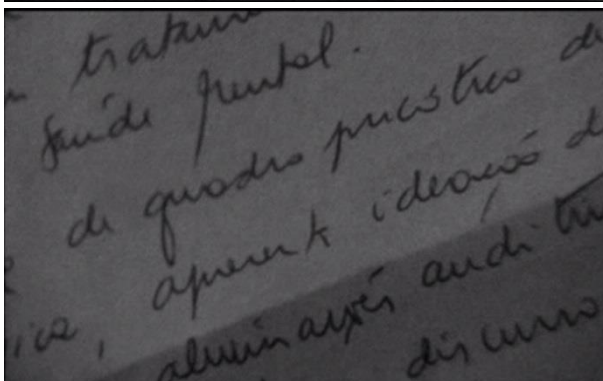 tratam
saúde mental.
de quadro psicótico de
ica, apresenta ideação d
alucinações auditiv
discurso